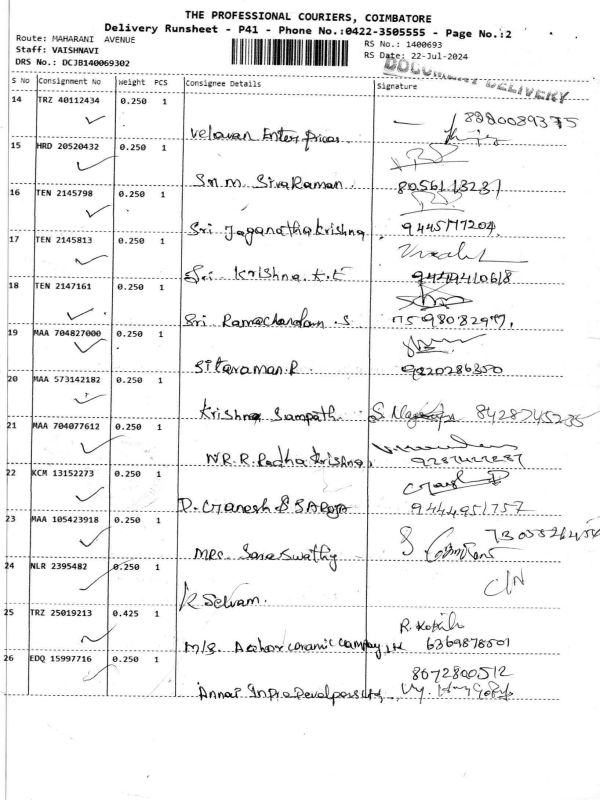 THE PROFESSIONAL COURIERS, COIMBATORE
Delivery Runsheet - P41 - Phone No.:0422-3505555 - Page No.:2
Route: MAHARANI AVENUE
RS No.: 1400693
Staff: VAISHNAVI
RS Date: 22-Jul-2024
DRS No.: DCJB140069302
DOCUMENT DELIVERY
S No Consignment No Weight PCS Consignee Details Signature
14 TRZ 40112434 0.250 1
8880089375
Velavan Enterprices
15 HRD 20520432 0.250 1
Sn.m. Sivaraman 8056113231
16 TEN 2145798 0.250 1
Sri Jaganatha krishna
17 TEN 2145813 0.250 1
Sri Krishna K.E 9449410618
18 TEN 2147161 0.250 1
Sri Ramachandran .S
19 MAA 704827000 0.250 1
Sitaraman.R 9220286350
20 MAA 573142182 0.250 1
Krishna Sampath 8428745235
21 MAA 704077612 0.250 1
R. Radha Krishna
22 KCM 13152273 0.250 1
D. Ganesh & SAROJA 9444951757
23 MAA 105423918 0.250 1
MRS Saraswathy
24 NLR 2395482 0.250 1
K Selvam. C/N
25 TRZ 25019213 0.425 1
R. Kokila
M/S. 6369878501
26 EDQ 15997716 0.250 1
8072800512
Annai